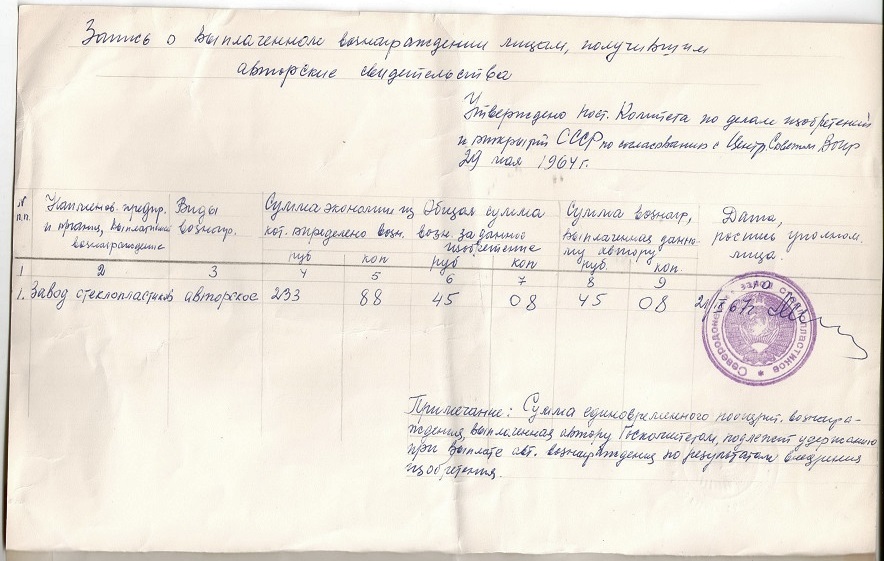 Запись о выплаченном вознаграждении лицам, получившим
авторские свидетельства
Утверждено пост. Комитета по делам изобретений
и открытий СССР по согласованию с Центр. Советом Воир
29 мая 1964 г.
№ п.п.
Наименов. предпр. и организ, выплативш вознаграждение
Виды вознагр.
Сумма экономии из кот. определено возн.
Общая сумма возн. за данное изобретение
Сумма вознагр, выплаченная данному автору
Дата, роспись уполном. лица.
руб коп руб коп руб. коп.
1 2 3 4 5 6 7 8 9 10
1. Завод стеклопластиков авторское 233 88 45 08 45 08 21/IX 67г.
завод стеклопластиков
Примечание: Сумма единовременного поощрит. вознагра-
ждения, выплаченная автору Госкомитетом, подлежит удержанию
при выплате авт. вознаграждения по результатам внедрения
изобретения.